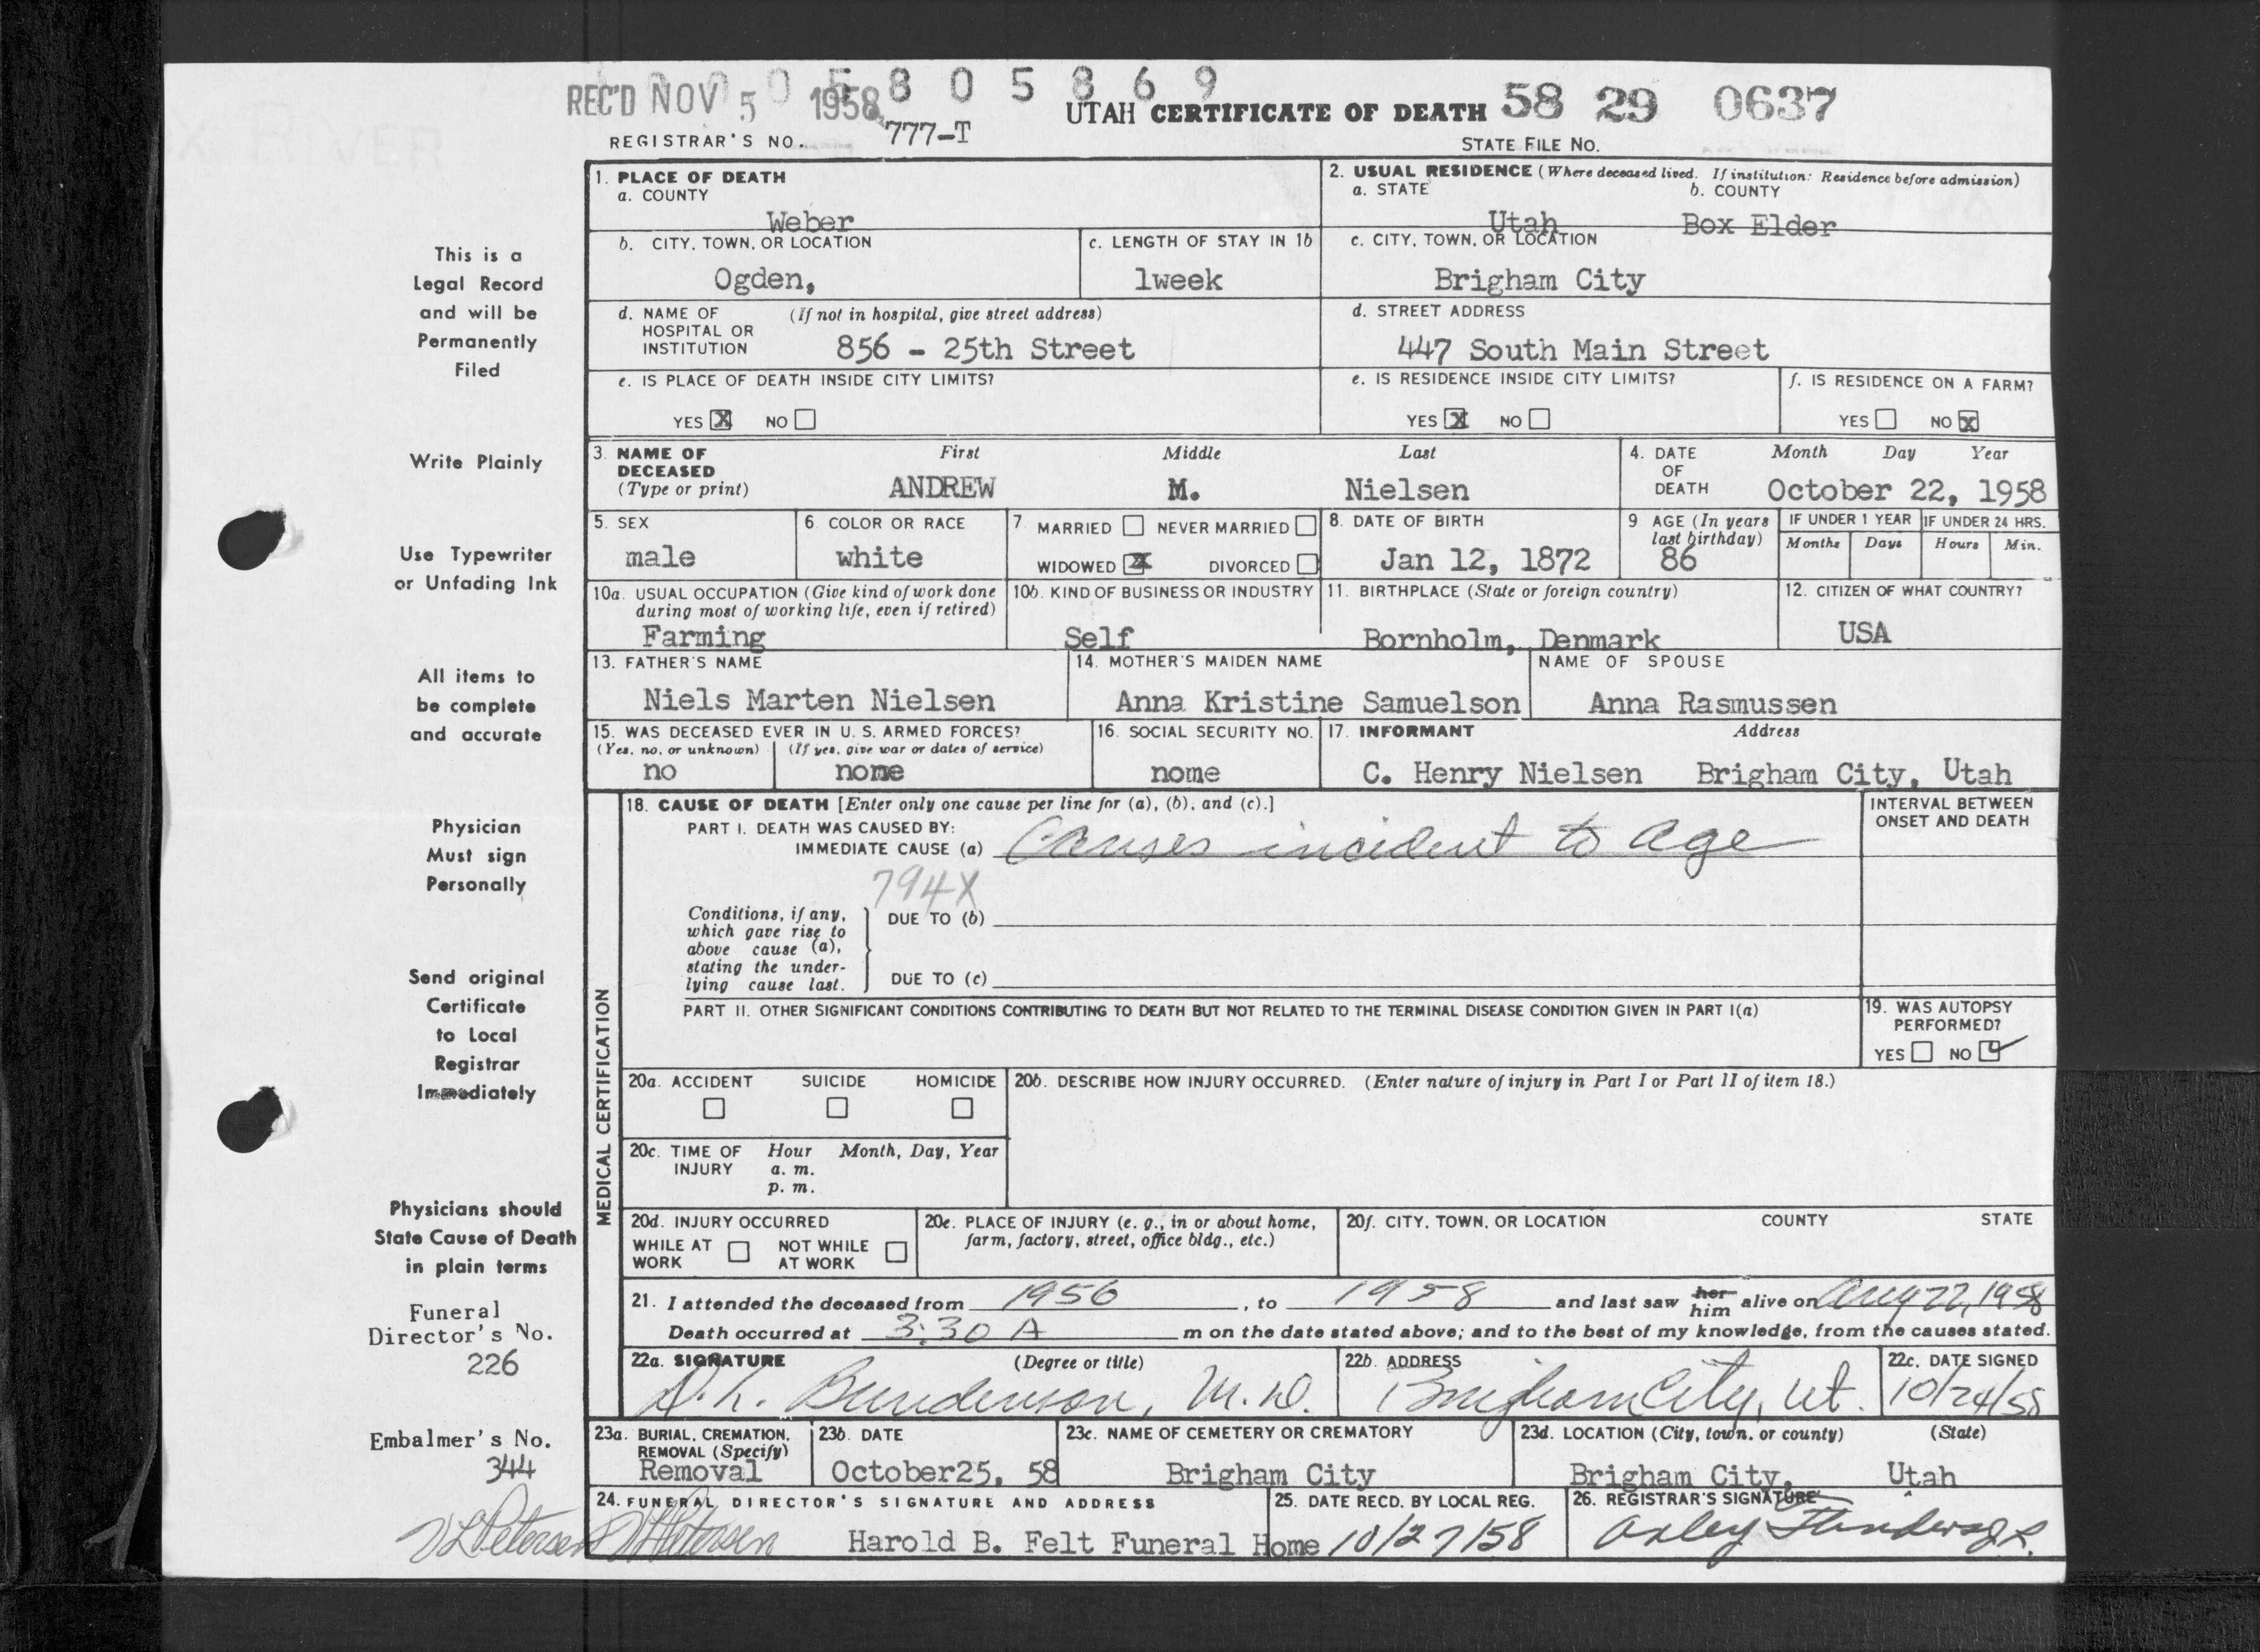 REC'D NOV 5 1958
0 5 8 0 5 8 6 9
UTAH CERTIFICATE OF DEATH 58 29 0637
REGISTRAR'S NO. 777-T
STATE FILE NO.
This is a
Legal Record
and will be
Permanently
Filed
Write Plainly
Use Typewriter
or Unfading Ink
All items to
be complete
and accurate
Physician
Must sign
Personally
Send original
Certificate
to Local
Registrar
Immediately
Physicians should
State Cause of Death
in plain terms
Funeral
Director's No.
226
Embalmer's No.
344
1. PLACE OF DEATH
a. COUNTY
Weber
2. USUAL RESIDENCE (Where deceased lived. If institution: Residence before admission)
a. STATE b. COUNTY
Utah Box Elder
b. CITY, TOWN, OR LOCATION
Ogden,
c. LENGTH OF STAY IN 1b
1week
c. CITY, TOWN, OR LOCATION
Brigham City
d. NAME OF (If not in hospital, give street address)
HOSPITAL OR
INSTITUTION 856 - 25th Street
d. STREET ADDRESS
447 South Main Street
e. IS PLACE OF DEATH INSIDE CITY LIMITS?
YES X NO
e. IS RESIDENCE INSIDE CITY LIMITS?
YES X NO
f. IS RESIDENCE ON A FARM?
YES NO X
3. NAME OF First Middle Last
DECEASED
(Type or print) ANDREW M. Nielsen
4. DATE Month Day Year
OF
DEATH October 22, 1958
5. SEX
male
6. COLOR OR RACE
white
7. MARRIED NEVER MARRIED
WIDOWED X DIVORCED
8. DATE OF BIRTH
Jan 12, 1872
9 AGE (In years
last birthday)
86
IF UNDER 1 YEAR IF UNDER 24 HRS.
Months Days Hours Min.
10a. USUAL OCCUPATION (Give kind of work done
during most of working life, even if retired)
Farming
10b. KIND OF BUSINESS OR INDUSTRY
Self
11. BIRTHPLACE (State or foreign country)
Bornholm, Denmark
12. CITIZEN OF WHAT COUNTRY?
USA
13. FATHER'S NAME
Niels Marten Nielsen
14. MOTHER'S MAIDEN NAME
Anna Kristine Samuelson
NAME OF SPOUSE
Anna Rasmussen
15. WAS DECEASED EVER IN U. S. ARMED FORCES?
(Yes, no, or unknown) (If yes, give war or dates of service)
no none
16. SOCIAL SECURITY NO.
nome
17. INFORMANT Address
C. Henry Nielsen Brigham City, Utah
MEDICAL CERTIFICATION
18. CAUSE OF DEATH [Enter only one cause per line for (a), (b), and (c).]
PART I. DEATH WAS CAUSED BY:
IMMEDIATE CAUSE (a) Causes incident to age
794X
INTERVAL BETWEEN
ONSET AND DEATH
Conditions, if any,
which gave rise to
above cause (a),
stating the under-
lying cause last.
DUE TO (b)
DUE TO (c)
PART II. OTHER SIGNIFICANT CONDITIONS CONTRIBUTING TO DEATH BUT NOT RELATED TO THE TERMINAL DISEASE CONDITION GIVEN IN PART I(a)
19. WAS AUTOPSY
PERFORMED?
YES NO ✓
20a. ACCIDENT SUICIDE HOMICIDE
20b. DESCRIBE HOW INJURY OCCURRED. (Enter nature of injury in Part I or Part II of item 18.)
20c. TIME OF Hour Month, Day, Year
INJURY a. m.
p. m.
20d. INJURY OCCURRED
WHILE AT NOT WHILE
WORK AT WORK
20e. PLACE OF INJURY (e. g., in or about home,
farm, factory, street, office bldg., etc.)
20f. CITY, TOWN, OR LOCATION COUNTY STATE
21. I attended the deceased from 1956, to 1958 and last saw her him alive on Aug 22, 1958
Death occurred at 3:30 A m on the date stated above; and to the best of my knowledge, from the causes stated.
22a. SIGNATURE (Degree or title)
Bunderson, M.D.
22b. ADDRESS
Brigham City, Ut.
22c. DATE SIGNED
10/24/58
23a. BURIAL, CREMATION,
REMOVAL (Specify)
Removal
23b. DATE
October25, 58
23c. NAME OF CEMETERY OR CREMATORY
Brigham City
23d. LOCATION (City, town, or county) (State)
Brigham City, Utah
24. FUNERAL DIRECTOR'S SIGNATURE AND ADDRESS
Petersen Petersen Harold B. Felt Funeral Home
25. DATE RECD. BY LOCAL REG.
10/27/58
26. REGISTRAR'S SIGNATURE